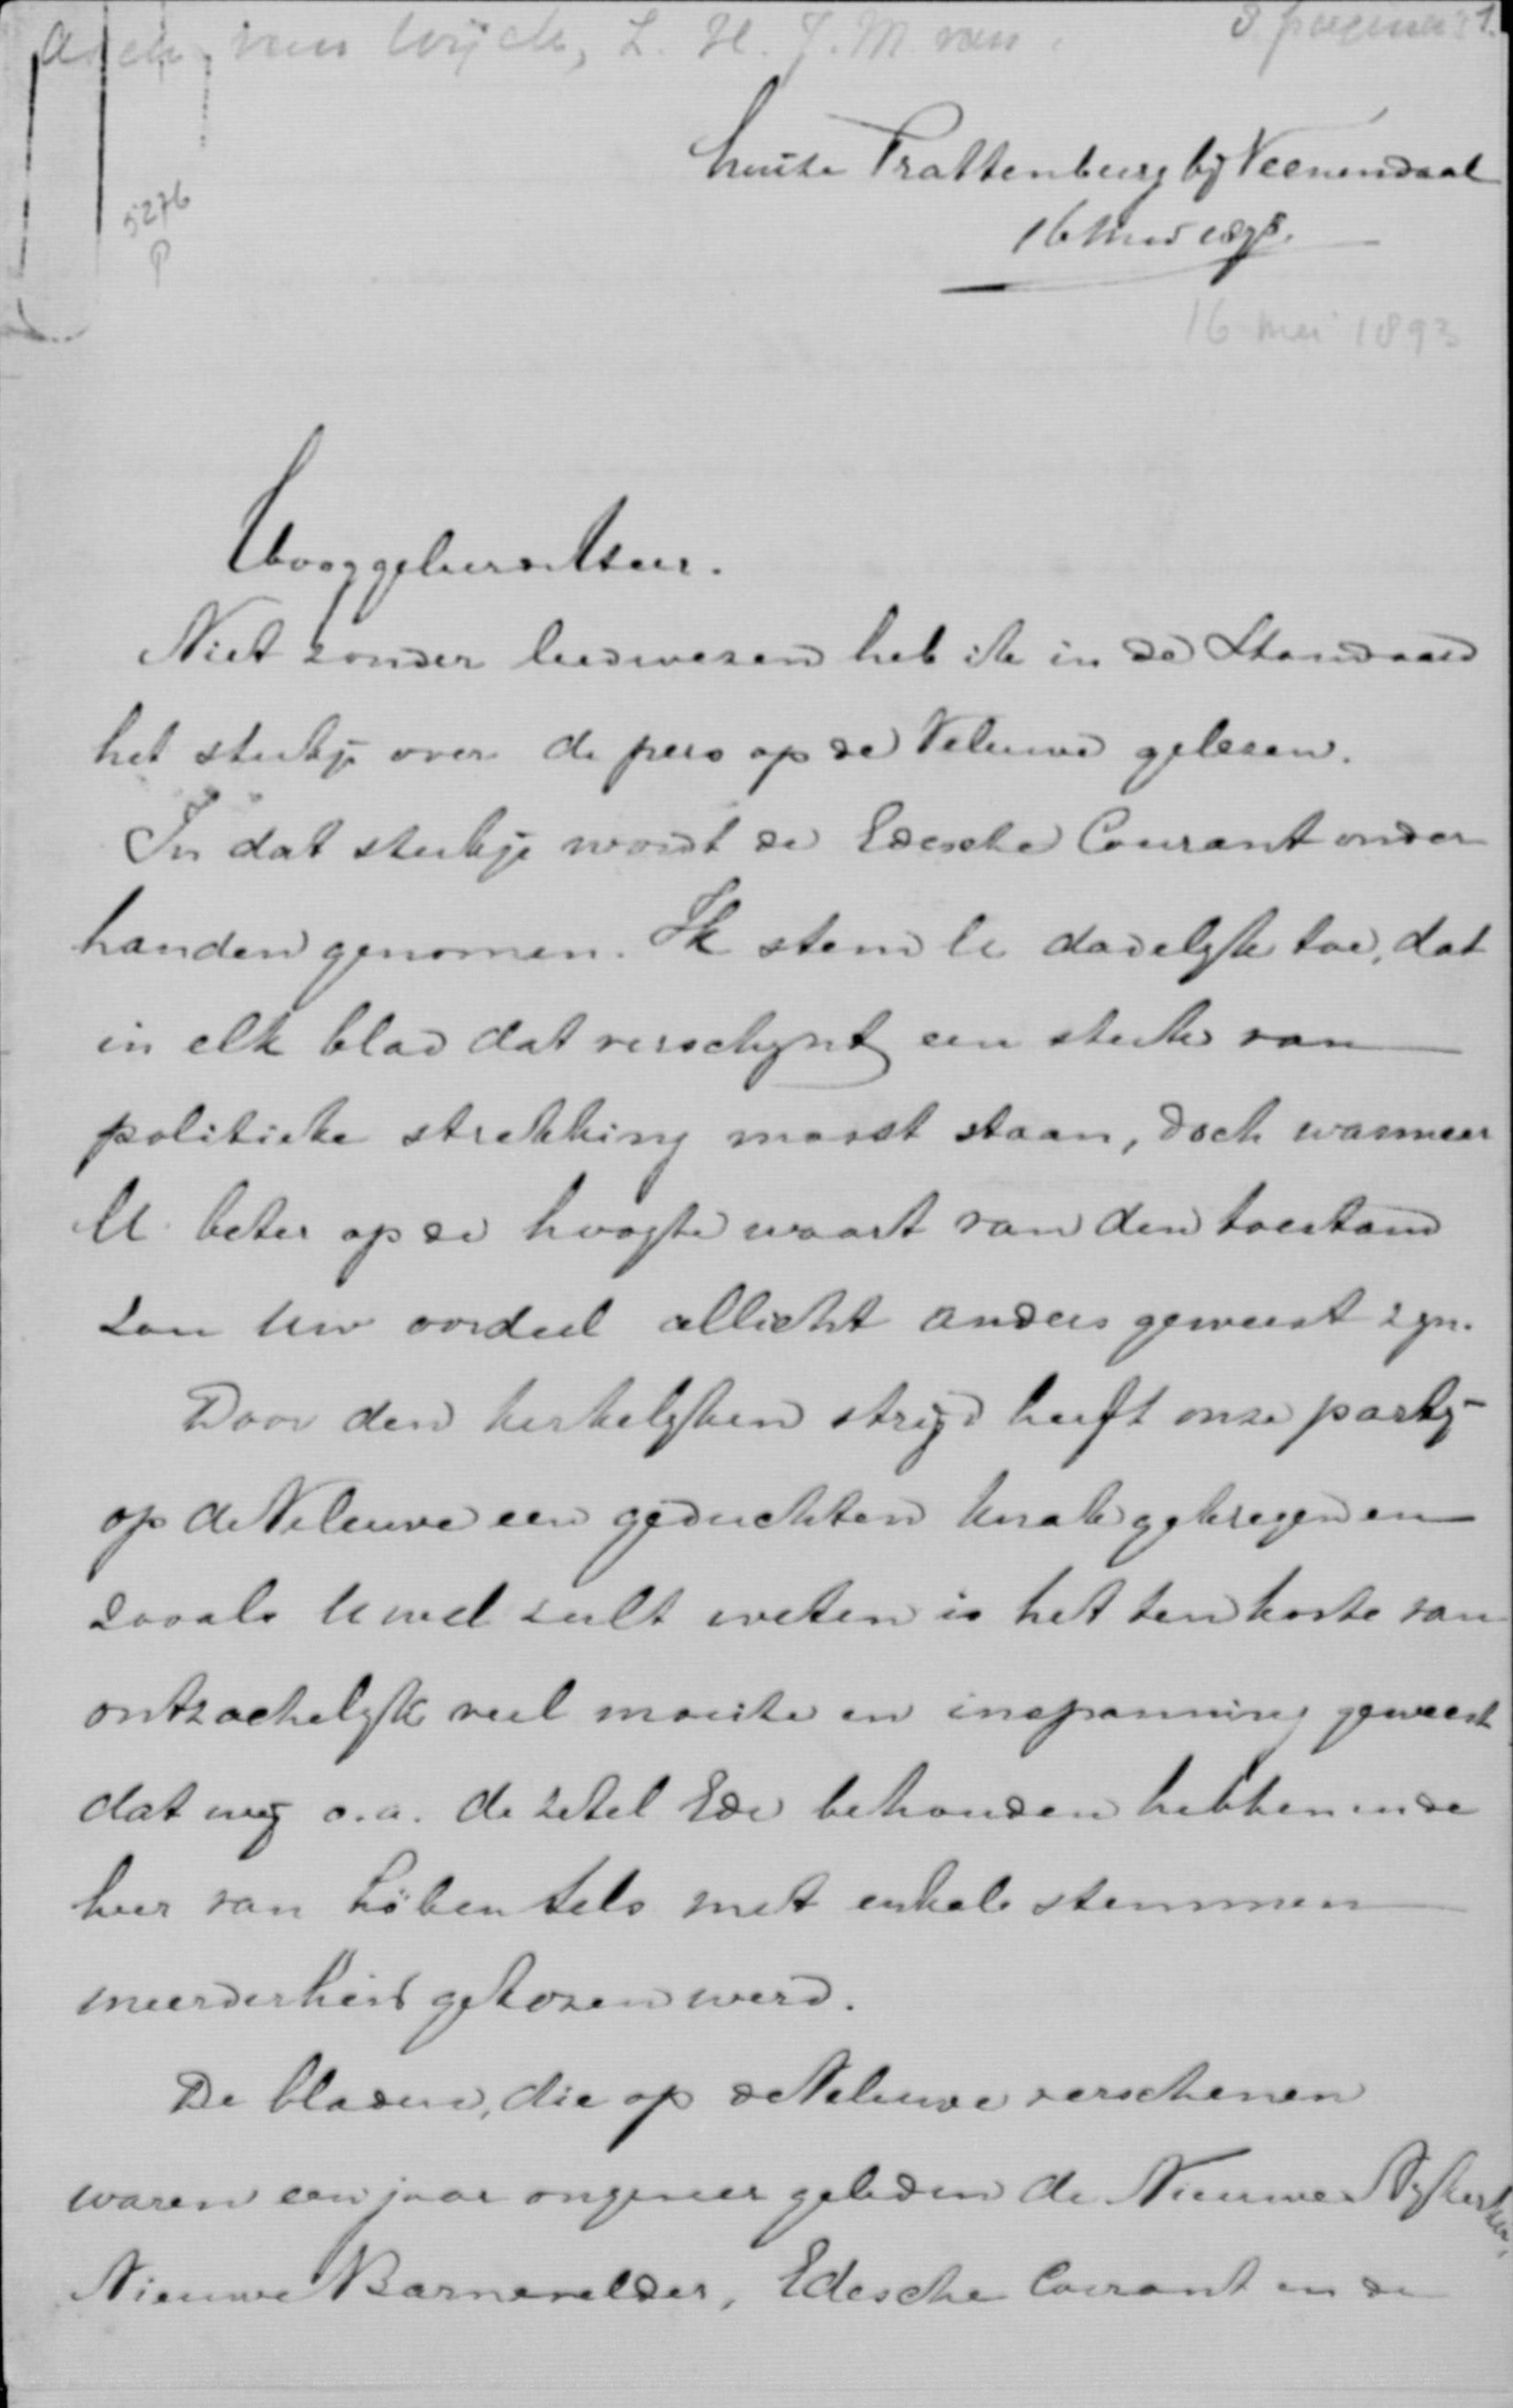 Asch van Wijck, L. H. J. M. van.
8 pagina's 1.
5276
P
huize Prattenburg bij Veenendaal
16 Mei 1893.
16 mei 1893
Hooggeleerde Heer.
Niet zonder leedwezen heb ik in de Standaard
het stukje over de pers op de Veluwe gelezen.
In dat stukje wordt de Edesche Courant onder
handen genomen. Ik stem U dadelyk toe, dat
in elk blad dat verschynt een stuk van
politieke strekking moest staan, doch wanneer
U beter op de hoogte waart van den toestand
zou Uw oordeel allicht anders geweest zyn.
Door den kerkelyken stryd heeft onze party
op de Veluwe een geduchten knak gekregen en
zooals U wel zult weten is het ten koste van
ontzachelyk veel moeite en inspanning geweest
dat wy o.a. de zetel Ede behouden hebben en de
heer van Löben Sels met enkele stemmen
meerderheid gekozen werd.
De bladen, die op de Veluwe verschenen
waren een jaar ongeveer geleden de Nieuwe Nykerker,
Nieuwe Barnevelder, Edesche Courant en de